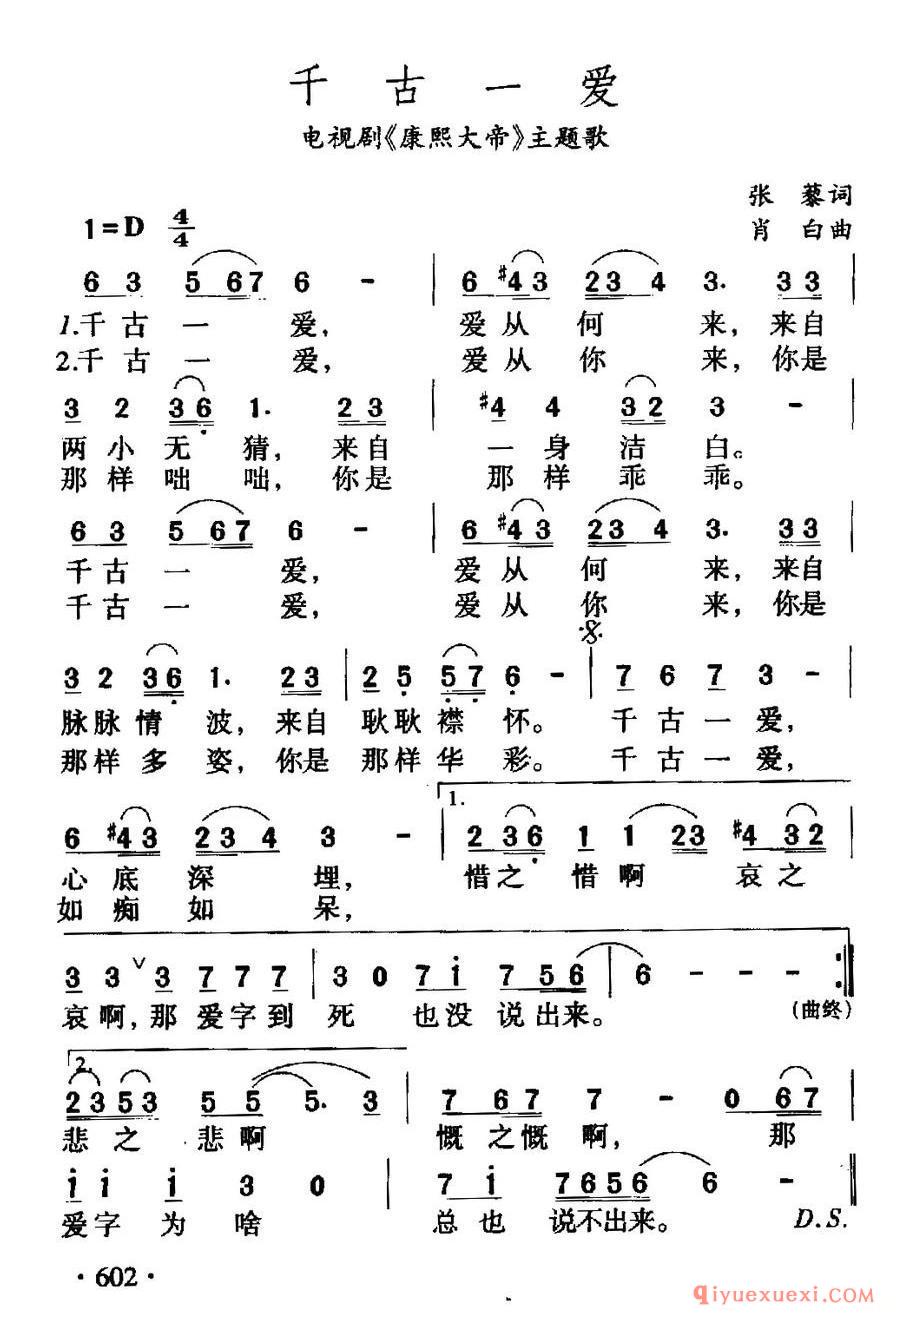 千古一爱
电视剧《康熙大帝》主题歌
张藜词
1=D 4/4 肖白曲
6 3 5 6 7 6 - | 6 #4 3 2 3 4 3. 3 3 |
1.千古一爱, 爱从何来, 来自
2.千古一爱, 爱从你来, 你是
3 2 3 6 1. 2 3 | #4 4 3 2 3 -
两小无猜, 来自一身洁白。
那样咄咄, 你是那样乖乖。
6 3 5 6 7 6 - | 6 #4 3 2 3 4 3. 3 3 |
千古一爱, 爱从何来, 来自
千古一爱, 爱从你来, 你是
3 2 3 6 1. 2 3 | 2 5 5 7 6 - | 7 6 7 3 - |
脉脉情波, 来自耿耿襟怀。千古一爱,
那样多姿, 你是那样华彩。千古一爱,
6 #4 3 2 3 4 3 - | 1. 2 3 6 1 1 2 3 #4 3 2 |
心底深埋, 惜之惜啊哀之
如痴如呆,
3 3 ∨ 3 7 7 7 | 3 0 7 i 7 5 6 | 6 - - - :||
哀啊, 那爱字到死也没说出来。 (曲终)
2. 2 3 5 3 5 5 5. 3 | 7 6 7 7 - 0 6 7 |
悲之悲啊 慨之慨啊, 那
i i i 3 0 | 7 i 7 6 5 6 6 - ||
爱字为啥总也说不出来。 D.S.
·602·
qiyuexuexi.com